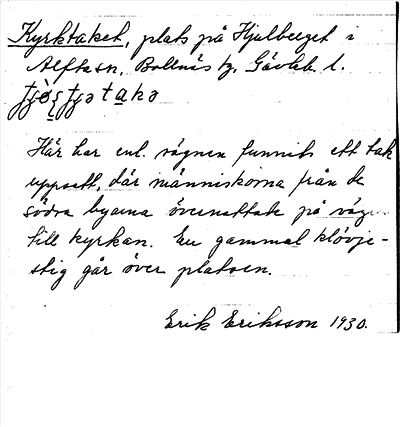 Kyrktaket, plats på Hjulberget i
Alftasn, Bollnäs tg, Gävleb. l.
takə
Här har enl. sägnen funnits ett tak
uppsatt, där människorna från de
södra byarna övernattade på väg
till kyrkan. En gammal klövje-
stig går över platsen.
Erik Eriksson 1930.